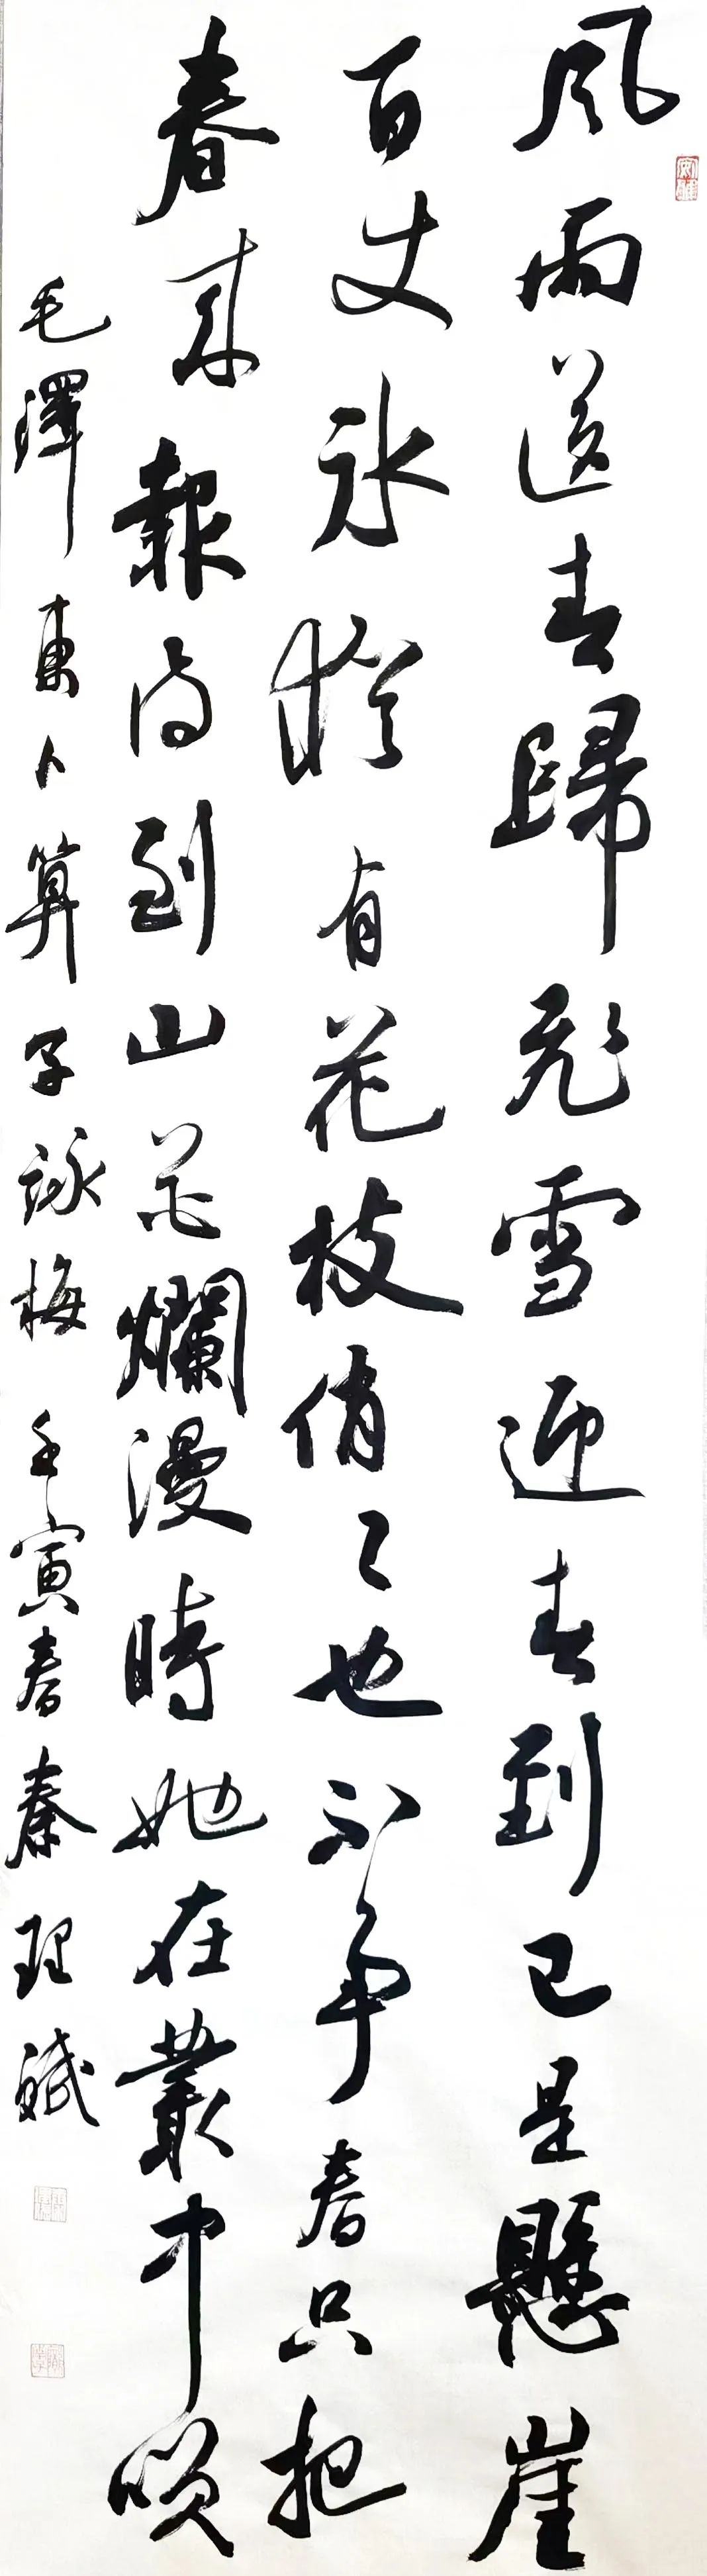 風雨送春歸飛雪迎春到已是懸崖
百丈冰猶有花枝俏〻也不争春只把
春来報待到山花爛漫時她在叢中咲
毛澤東卜算子詠梅 壬寅春 秦理